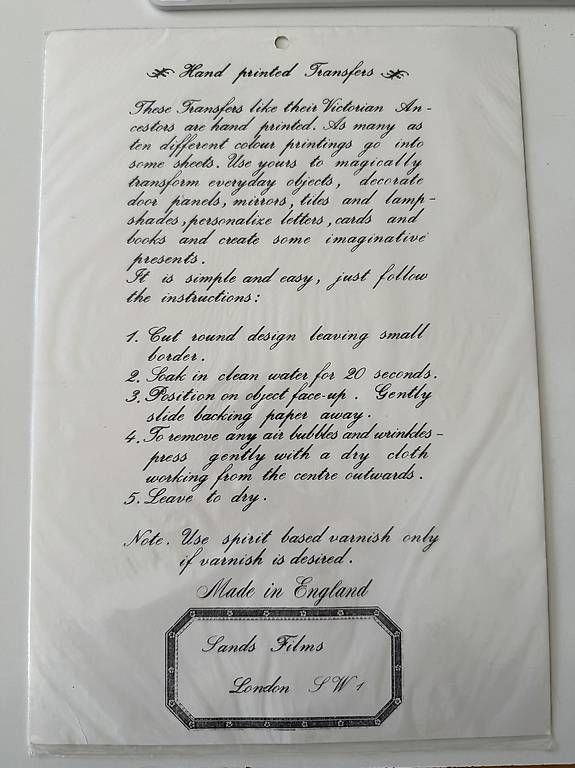 Hand printed Transfers
These Transfers like their Victorian An-
cestors are hand printed. As many as
ten different colour printings go into
some sheets. Use yours to magically
transform everyday objects, decorate
door panels, mirrors, tiles and lamp-
shades, personalize letters, cards and
books and create some imaginative
presents.
It is simple and easy, just follow
the instructions:
1. Cut round design leaving small
border.
2. Soak in clean water for 20 seconds.
3. Position on object face-up. Gently
slide backing paper away.
4. To remove any air bubbles and wrinkles-
press gently with a dry cloth
working from the centre outwards.
5. Leave to dry.
Note. Use spirit based varnish only
if varnish is desired.
Made in England
Sands Films
London SW1